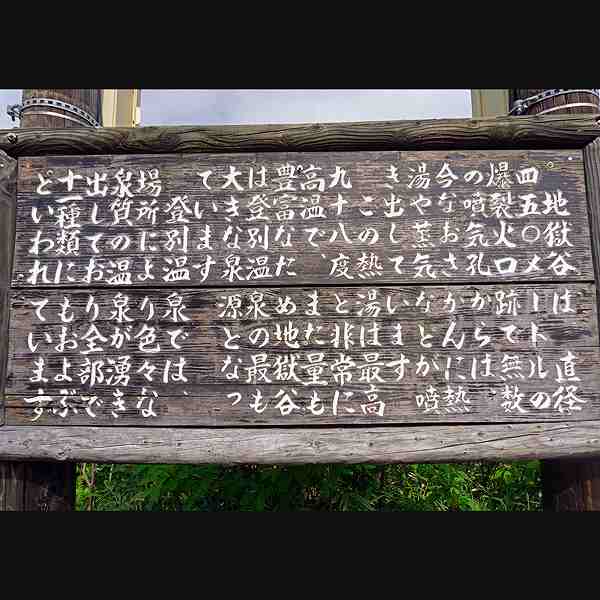 地獄谷は 直径
四五〇メートルの
爆裂火口跡で無数
の噴気孔からは
今なおさかんに熱
湯や蒸気などが噴
き出しています
この熱湯は最高
九十八度と非常に
高温で、また量も
豊富なため地獄谷
は登別温泉の最も
大きな泉源となっ
ています
登別温泉では、
場所により色々な
泉質の温泉が湧き
出しており全部で
十一種類にもおよぶ
といわれています